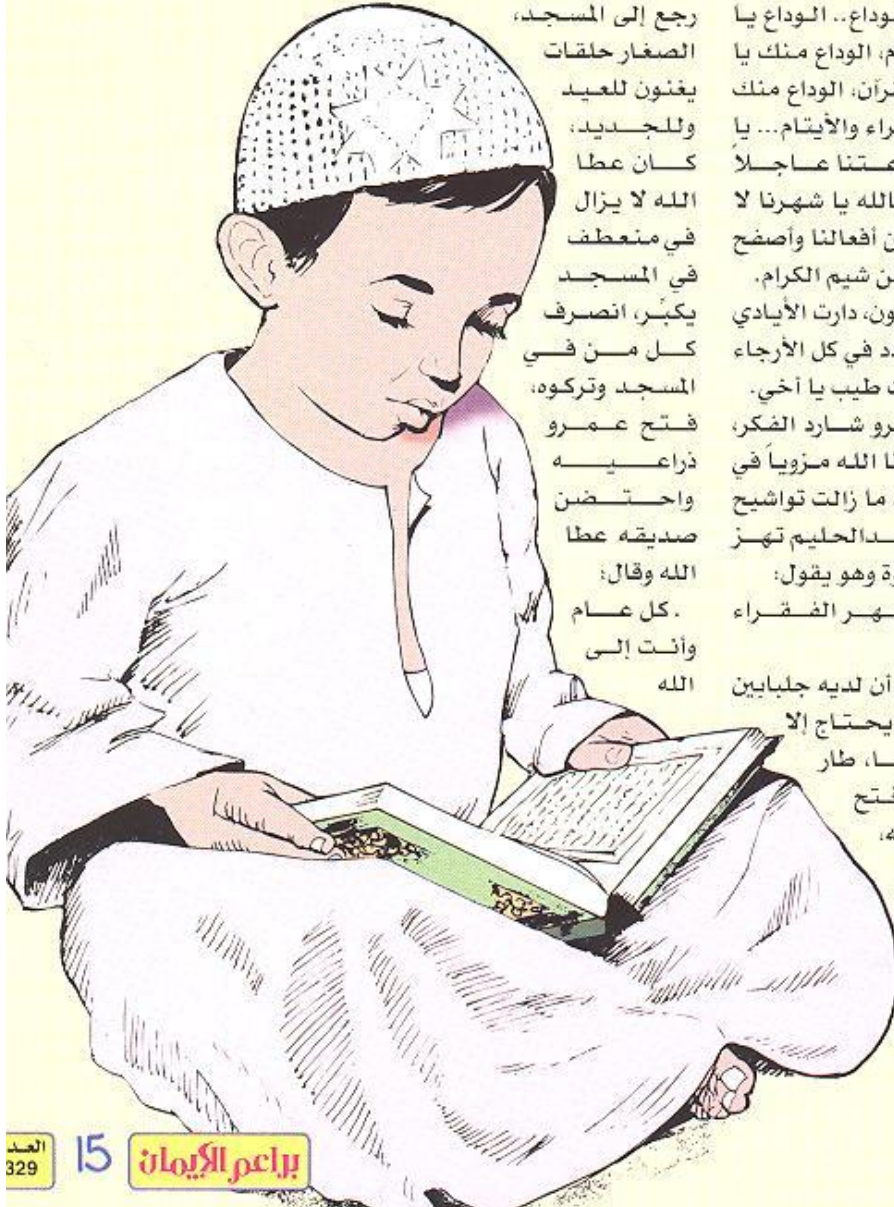 الوداع يا
الوداع منك يا
الوداع منك
والأيتام... يا
عاجلاً
يا شهرنا لا
أفعالنا وأصفح
شيم الكرام.
دارت الأيادي
في كل الأرجاء
طيب يا أخي.
شارد الفكر،
الله مزوياً في
ما زالت تواشيح
تهز
وهو يقول:
الفقراء
أن لديه جلبابين
يحتاج إلا
طار
رجع إلى المسجد،
الصغار حلقات
يغنون للعيد
وللجديد،
كان عطا
الله لا يزال
في منعطف
في المسجد
يكبِّر، انصرف
كل من في
المسجد وتركوه،
فتح عمرو
ذراعيه
واحتضن
صديقه عطا
الله وقال:
. كل عام
وأنت إلى
الله
براعم الإيمان
15
329